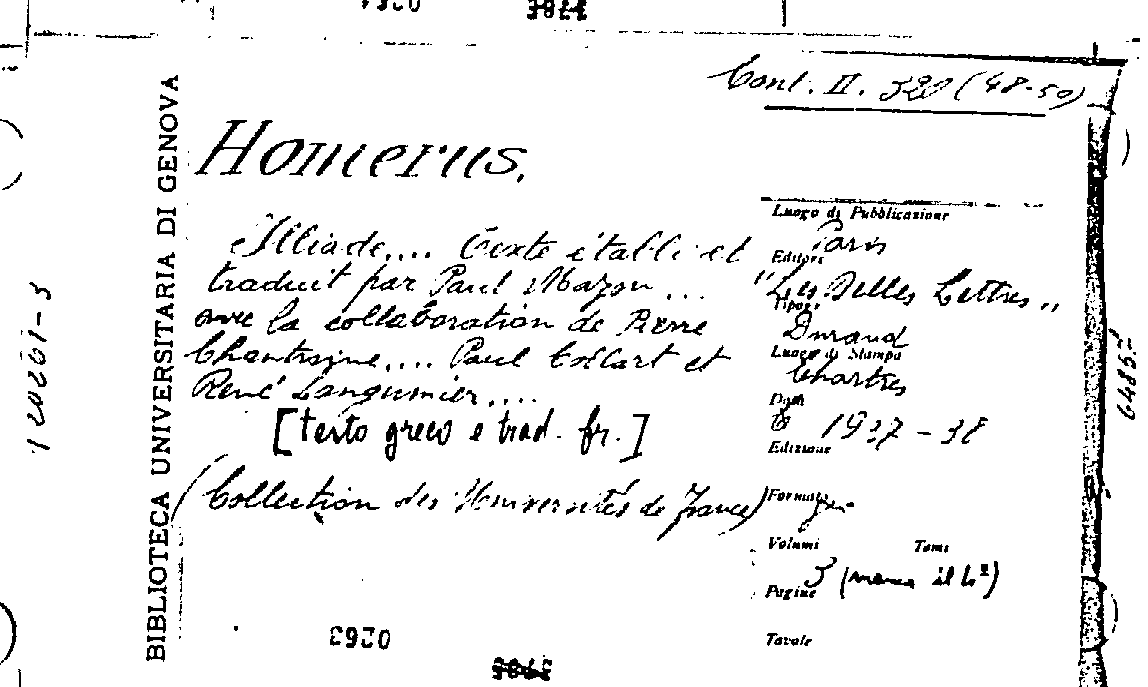 Cont. II. 320 (48-50)
BIBLIOTECA UNIVERSITARIA DI GENOVA
Homerus.
Illiade.... Texte établi et
traduit par Paul Mazon...
avec la collaboration de Pierre
Chantraine.... Paul Collart et
René Langumier....
[testo greco e trad. fr.]
(Collection des Universités de France)
Luogo di Pubblicazione
Paris
Editore
"Les Belles Lettres"
Tipogr.
Durand
Luogo di Stampa
Chartres
Data
1937-38
Edizione
Formato
Volumi Tomi
3 (manca il 1º)
Pagine
Tavole
120261-3
6485
0263